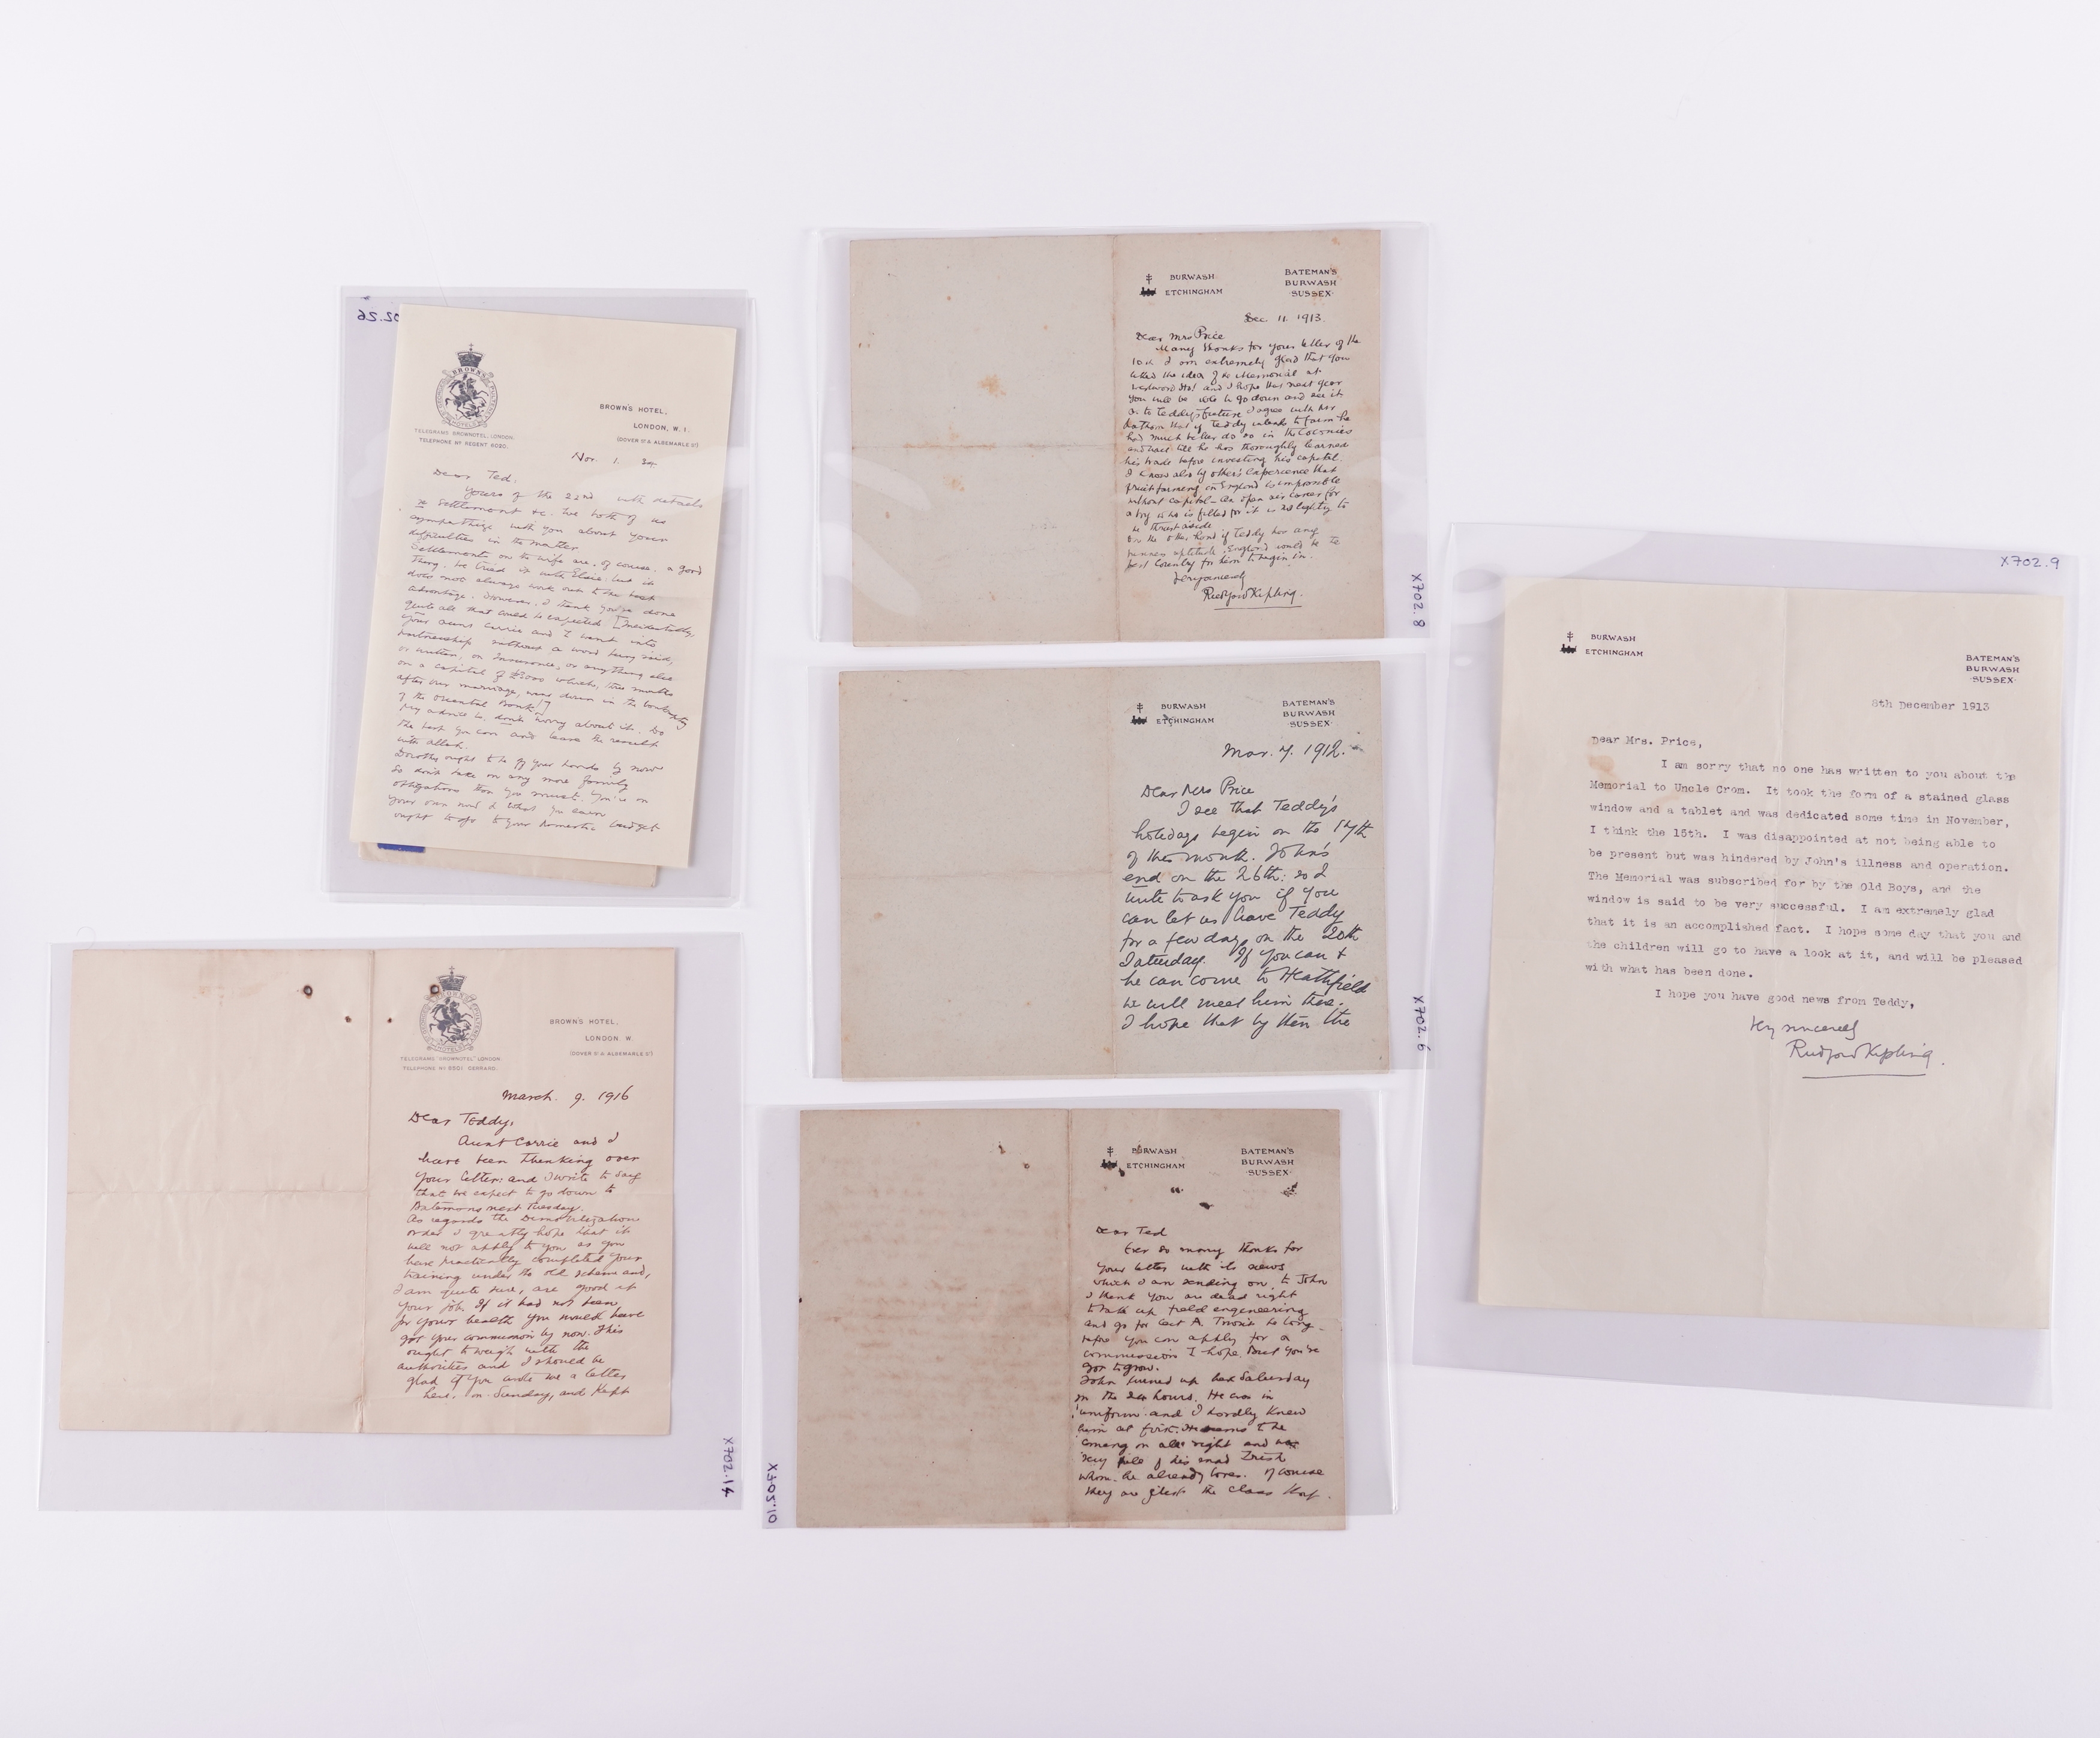 BROWN'S HOTEL,
LONDON, W. 1.
(DOVER ST & ALBEMARLE ST)
TELEGRAMS: BROWNOTEL, LONDON.
TELEPHONE No REGENT 6020.
Nov. 1. 34.
Dear Ted.
Yours of the 22nd with details
re Settlement &c. We both of us
sympathize with you about your
difficulties in the matter
Settlements on the wife are, of course, a good
thing. We tried it with Elsie: but it
does not always work out to the best
advantage. However, I think you've done
quite all that could be expected [Incidentally,
your aunt Carrie and I went into
partnership without a word being said,
or written, on Insurance, or anything else
on a capital of £2000 which, three months
after our marriage, went down in the bankruptcy
of the Oriental Bank!]
My advice is, don't worry about it. Do
the best you can and leave the result
with Allah.
Dorothy ought to be off your hands by now
So don't take on any more family
obligations than you must. You're on
your own now & what you earn
ought to go to your domestic budget
BURWASH
ETCHINGHAM
BATEMAN'S
BURWASH
SUSSEX
Dec. 11. 1913.
Dear Mrs Price
Many thanks for your letter of the
10th I am extremely glad that you
liked the idea of the Memorial at
Westward Ho! and I hope that next year
you will be able to go down and see it
As to Teddy's future I agree with
that if Teddy wants to farm he
had much better do so in the Colonies
and wait till he has thoroughly learned
his trade before investing his capital.
I know also by other's experience that
fruit farming in England is impossible
without capital – an open air career for
a boy who is fitted for it is not lightly to
be thrust aside
On the other hand if Teddy has any
aptitude, England would be the
best country for him to begin in.
Very sincerely
Rudyard Kipling.
X702.8
BURWASH
ETCHINGHAM
BATEMAN'S
BURWASH
SUSSEX
Mar. 7. 1912.
Dear Mrs Price
I see that Teddy's
holidays begin on the 17th
of this month. John's
end on the 26th: so I
write to ask you if you
can let us have Teddy
for a few days on the 20th
Saturday. If you can &
he can come to Heathfield
we will meet him there.
I hope that by then the
X702.6
X702.9
BURWASH
ETCHINGHAM
BATEMAN'S
BURWASH
SUSSEX
8th December 1913
Dear Mrs. Price,
I am sorry that no one has written to you about the
Memorial to Uncle Crom. It took the form of a stained glass
window and a tablet and was dedicated some time in November,
I think the 15th. I was disappointed at not being able to
be present but was hindered by John's illness and operation.
The Memorial was subscribed for by the Old Boys, and the
window is said to be very successful. I am extremely glad
that it is an accomplished fact. I hope some day that you and
the children will go to have a look at it, and will be pleased
with what has been done.
I hope you have good news from Teddy,
Vy sincerely
Rudyard Kipling.
BROWN'S HOTEL,
LONDON. W.
(DOVER ST & ALBEMARLE ST)
TELEGRAMS "BROWNOTEL" LONDON.
TELEPHONE No 5501 GERRARD.
March. 9. 1916
Dear Teddy,
Aunt Carrie and I
have been thinking over
your letter: and I write to say
that we expect to go down to
Batemans next Tuesday.
As regards the Demobilization
order I greatly hope that it
will not apply to you as you
have practically completed your
training under the old scheme and,
I am quite sure, are good at
your job. If it had not been
for your health you would have
got your commission by now. This
ought to weigh with the
authorities and I should be
glad if you wrote me a letter
here. on. Sunday, and kept
X702.14
BURWASH
ETCHINGHAM
BATEMAN'S
BURWASH
SUSSEX
Dear Ted
Ever so many thanks for
your letter with its news
which I am sending on to John
I think you are dead right
to take up field engineering
and go for Cert A. 'Twon't be long
before you can apply for a
commission I hope. But you've
got to grow.
John turned up last Saturday
on the 24 hours. He was in
uniform and I hardly knew
him at first. He seems to be
coming on all right and
very full of his mad Irish
whom he already loves. Of course
they are the class
X702.10